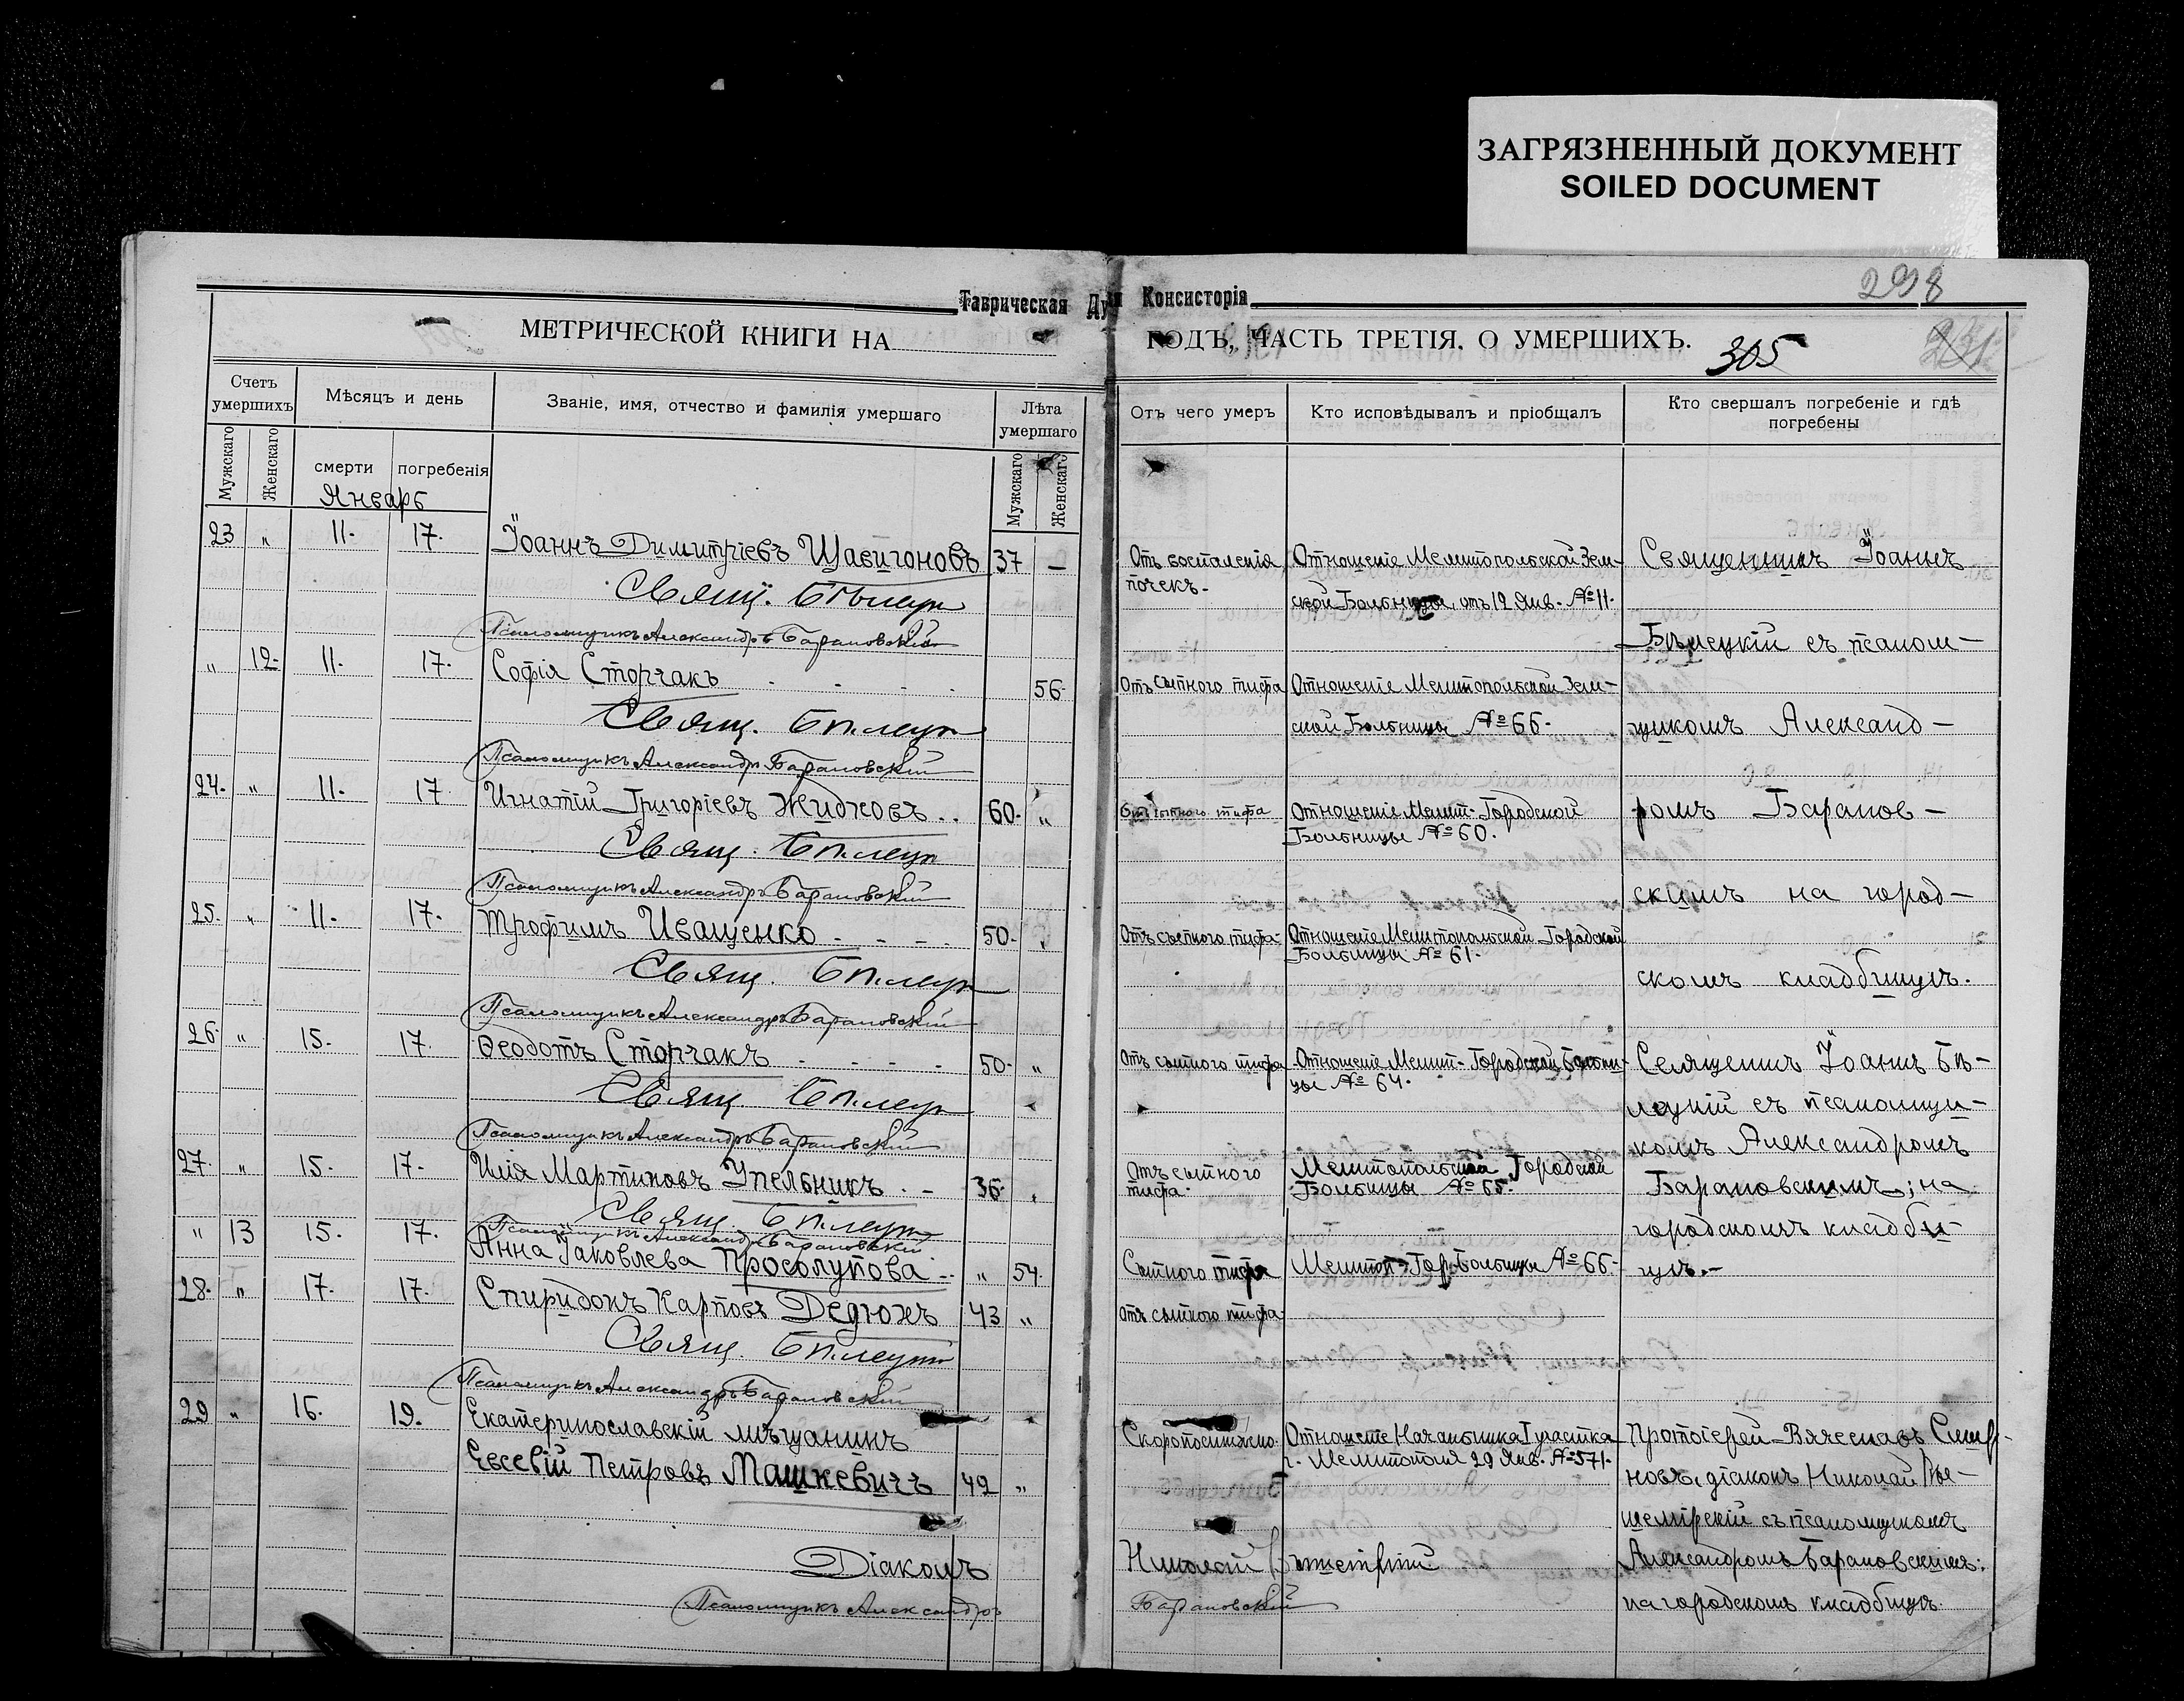 ЗАГРЯЗНЕННЫЙ ДОКУМЕНТ
SOILED DOCUMENT
298
Таврическая Ду Консисторія
МЕТРИЧЕСКОЙ КНИГИ НА ГОДЪ, ЧАСТЬ ТРЕТІЯ, О УМЕРШИХЪ. 305
Счетъ умершихъ
Мужскаго
Женскаго
Мѣсяцъ и день
смерти
погребенія
Званіе, имя, отчество и фамилія умершаго
Лѣта умершаго
Мужскаго
Женскаго
Отъ чего умеръ
Кто исповѣдывалъ и пріобщалъ
Кто свершалъ погребеніе и гдѣ
погребены
Январь
23 " 11. 17. Іоаннъ Димитріевъ Щавигоновъ 37 —
Отъ воспаленія
почекъ.
Отношеніе Мелитопольской Зем-
ской Больницы, отъ 12 Янв. № 11.
Священникъ Іоаннъ
Свящ.
Псаломщикъ Александръ Барановскій
Бѣлецкій съ псалом-
" 12. 11. 17. Софія Сторчакъ 56.
Отъ сыпного тифа
Отношеніе Мелитопольской Зем-
ской Больницы № 66.
щикомъ Александ-
Свящ.
Псаломщикъ Александръ Барановскій
24. " 11. 17. Игнатій Григоріевъ Жидковъ .. 60. "
Отъ сыпного тифа
Отношеніе Мелит. Городской
Больницы № 60.
ромъ Баранов-
Свящ.
Псаломщикъ Александръ Барановскій
скимъ на город-
25. " 11. 17. Трофимъ Иващенко 50. "
Отъ сыпного тифа.
Отношеніе Мелитопольской Городской
Больницы № 61.
скомъ кладбищѣ.
Свящ.
Псаломщикъ Александръ Барановскій
26. " 15. 17. Ѳеодотъ Сторчакъ 50. "
Отъ сыпного тифа
Отношеніе Мелит. Городской Больни-
цы № 64.
Священникъ Іоаннъ Бѣ-
лецкій съ псаломщи-
Свящ.
Псаломщикъ Александръ Барановскій
комъ Александромъ
27. " 15. 17. Илія Мартиновъ Упельникъ . - 36. "
Отъ сыпного
тифа.
Мелитопольской Городской
Больницы № 65.
Барановскимъ; на
Свящ.
Псаломщикъ Александръ Барановскій
городскомъ кладби-
" 13 15. 17. Анна Іаковлева Просолупова .. " 54.
Сыпного тифа
Мелитоп. Гор. Больницы № 66.
щѣ. -
28. " 17. 17. Спиридонъ Карповъ Дедюхъ 43 "
Отъ сыпного тифа.
Свящ.
Псаломщикъ Александръ Барановскій
29 " 16. 19. Екатеринославскій мѣщанинъ
Евсевій Петровъ Машкевичъ 49 "
Скоропостижно.
Отношеніе Начальника I участка
г. Мелитополя 29 Янв. № 571.
Протоіерей Вячеславъ Смир-
новъ, діаконъ Николай
съ псаломщикомъ
Діаконъ Николай
Александромъ Барановскимъ;
Псаломщикъ Александръ Барановскій
на городскомъ кладбищѣ.